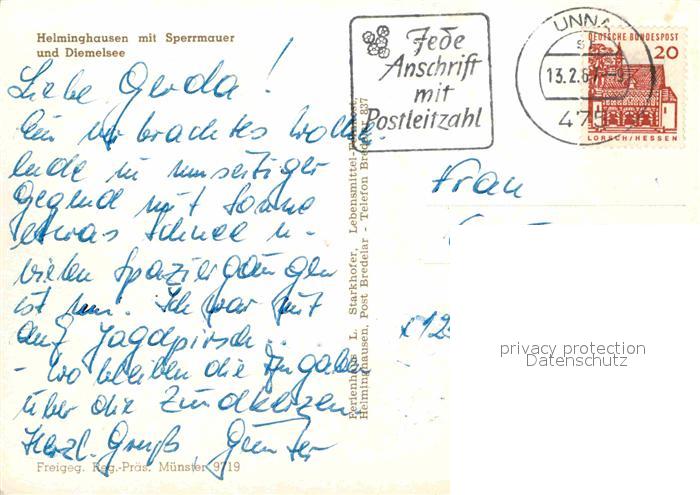 Helminghausen mit Sperrmauer
und Diemelsee
Liebe Gerda!
Ein verbrachtes Wochen-
ende in umseitiger
Gegend mit Sonne
etwas Schnee u.
vielen Spaziergängen
ist um. Ich war mit
auf Jagdpirsch..
- wo bleiben die Angaben
über die Zündkerzen
Herzl. Gruß Günter
Freigeg. Reg.-Präs. Münster 9719
Ferienhaus L. Starkhofer, Lebensmittel-
Helminghausen, Post Bredelar - Telefon Bredelar 837
Jede
Anschrift
mit
Postleitzahl
UNNA
13.2.67
475
DEUTSCHE BUNDESPOST
20
LORSCH/HESSEN
Frau
privacy protection
Datenschutz